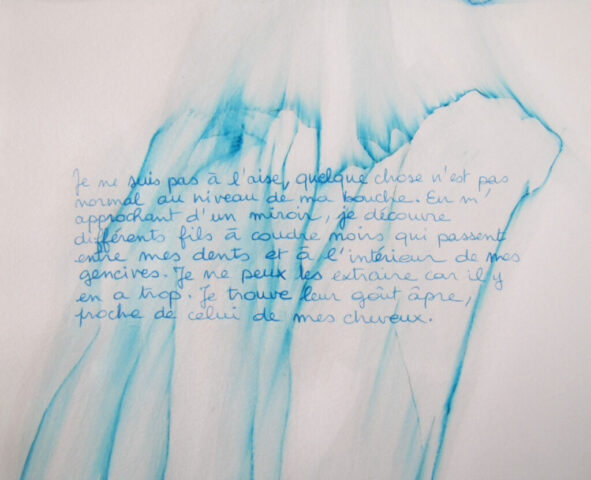 Je ne suis pas à l'aise, quelque chose n'est pas
normal au niveau de ma bouche. En m'
approchant d'un miroir, je découvre
différents fils à coudre noirs qui passent
entre mes dents et à l'intérieur de mes
gencives. Je ne peux les extraire car il y
en a trop. Je trouve leur goût âpre,
proche de celui de mes cheveux.